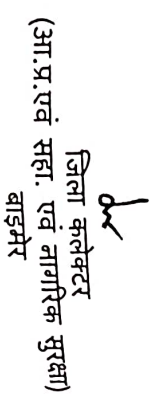 जिला कलेक्टर
(आ.प्र.एवं सहा. एवं नागरिक सुरक्षा)
बाड़मेर